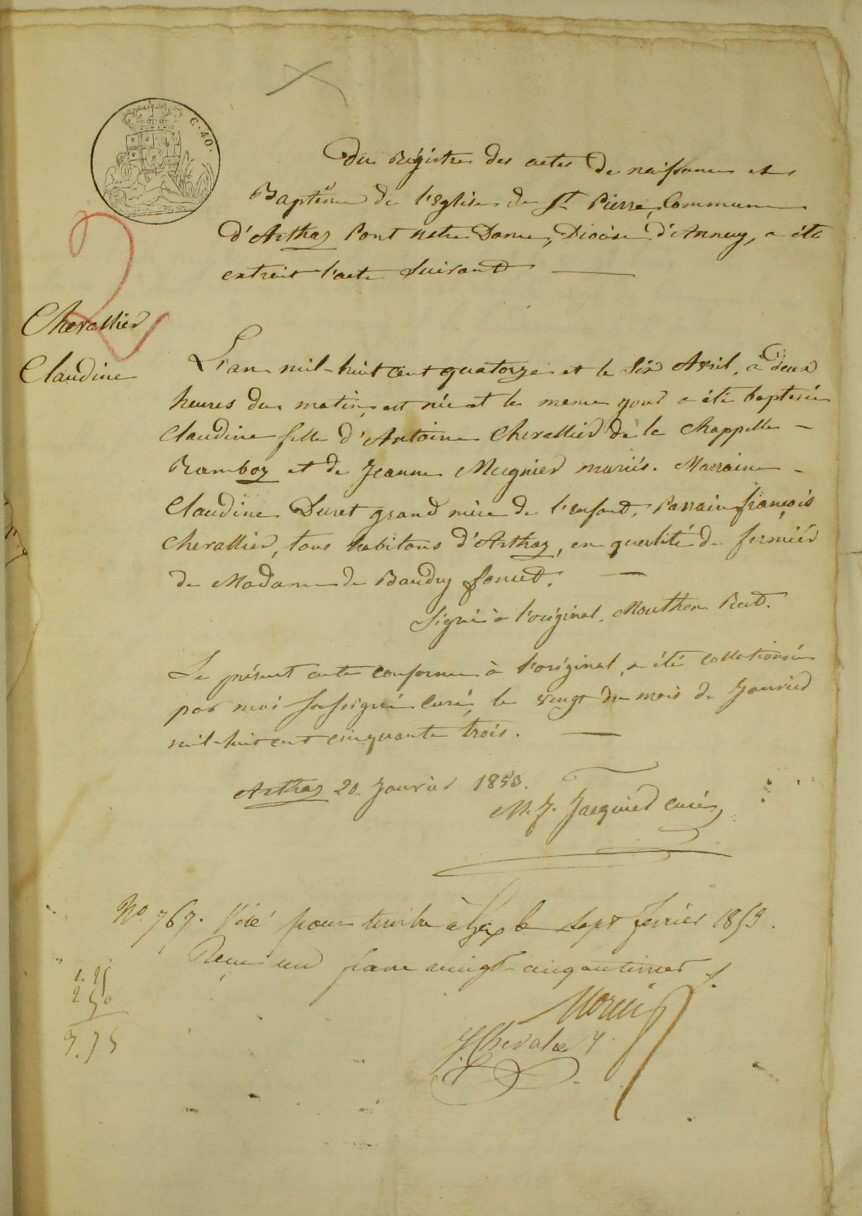 C. 40.
2
Du Régistre des actes de naissance et
Baptême de l'Eglise de St Pierre, Commune
d'Arthaz Pont notre Dame, Diocèse d'Annecy, a été
extrait l'acte Suivant
Chevallier
Claudine
L'an mil-huit cent quatorze et le six Avril, à deux
heures du matin, est née et le meme jour a été baptisée
Claudine fille d'Antoine Chevallier de la Chappelle
Ramboz et de Jeanne Mugnier mariés. Marraine
Claudine Duret grand mère de l'enfant, Parrain françois
Chevallier, tous habitans d'Arthaz, en qualité de fermiér
de Madame de Baudry
Signé à l'original, Mouthon Rect.
Le présent acte conforme à l'original, a été collationné
par moi soussigné curé, le vingt du mois de Janvier
mil-huit cent cinquante trois.
Arthaz 20. Janvier 1853.
M. J. Jacquier curé
No 767. Visé pour timbre à Gex le sept février 1853.
Reçu un franc vingt-cinq centimes
1.25
2.50
3.75
J. Chevalier